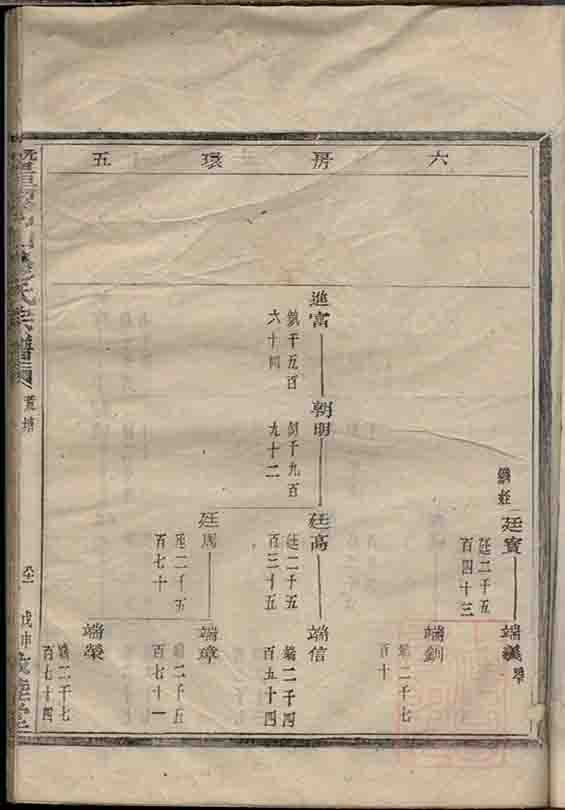 六房環五
繼姪
廷寶
廷二千五
百四十三
端義
端釧
端二千七
百十
進富
鎮千五百
六十四
朝明
朝千九百
九十二
廷高
廷二千五
百三十五
端信
端二千四
百五十四
廷周
廷二千五
百七十
端璋
端二千五
百七十一
端榮
端二千七
百七十四
氏宗譜
戊申